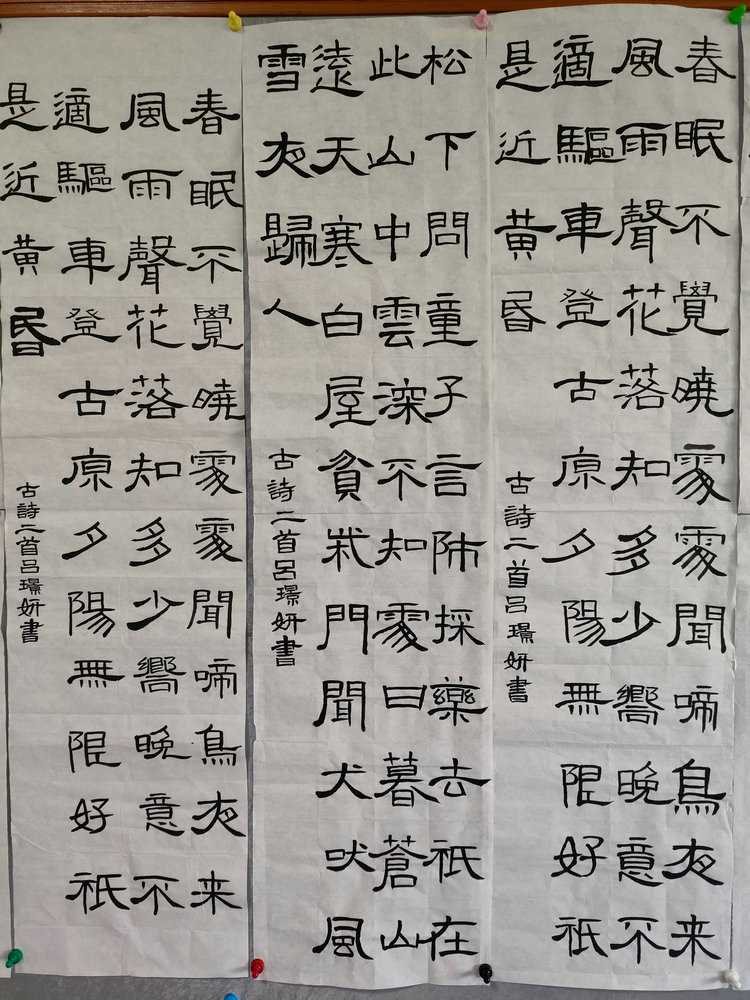 春眠不覺曉處處聞啼鳥夜来
風雨聲花落知多少嚮晚意不
適驅車登古原夕陽無限好祇
是近黃昏
古詩二首吕璟妍書
松下問童子言師採藥去祇在
此山中雲深不知處日暮蒼山
遠天寒白屋貧柴門聞犬吠風
雪夜歸人
古詩二首呂璟妍書
春眠不覺曉處處聞啼鳥夜来
風雨聲花落知多少嚮晚意不
適驅車登古原夕陽無限好祇
是近黃昏
古詩二首吕璟妍書